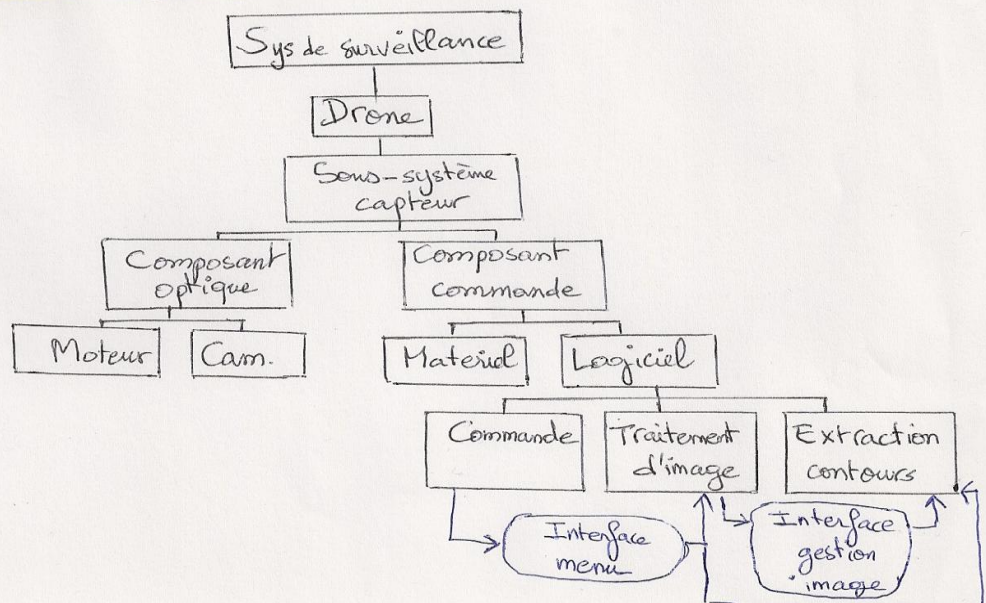 Sys de surveillance
Drone
Sous-système
capteur
Composant
optique
Composant
commande
Moteur
Cam.
Matériel
Logiciel
Commande
Traitement
d'image
Extraction
contours
Interface
menu
Interface
gestion
image